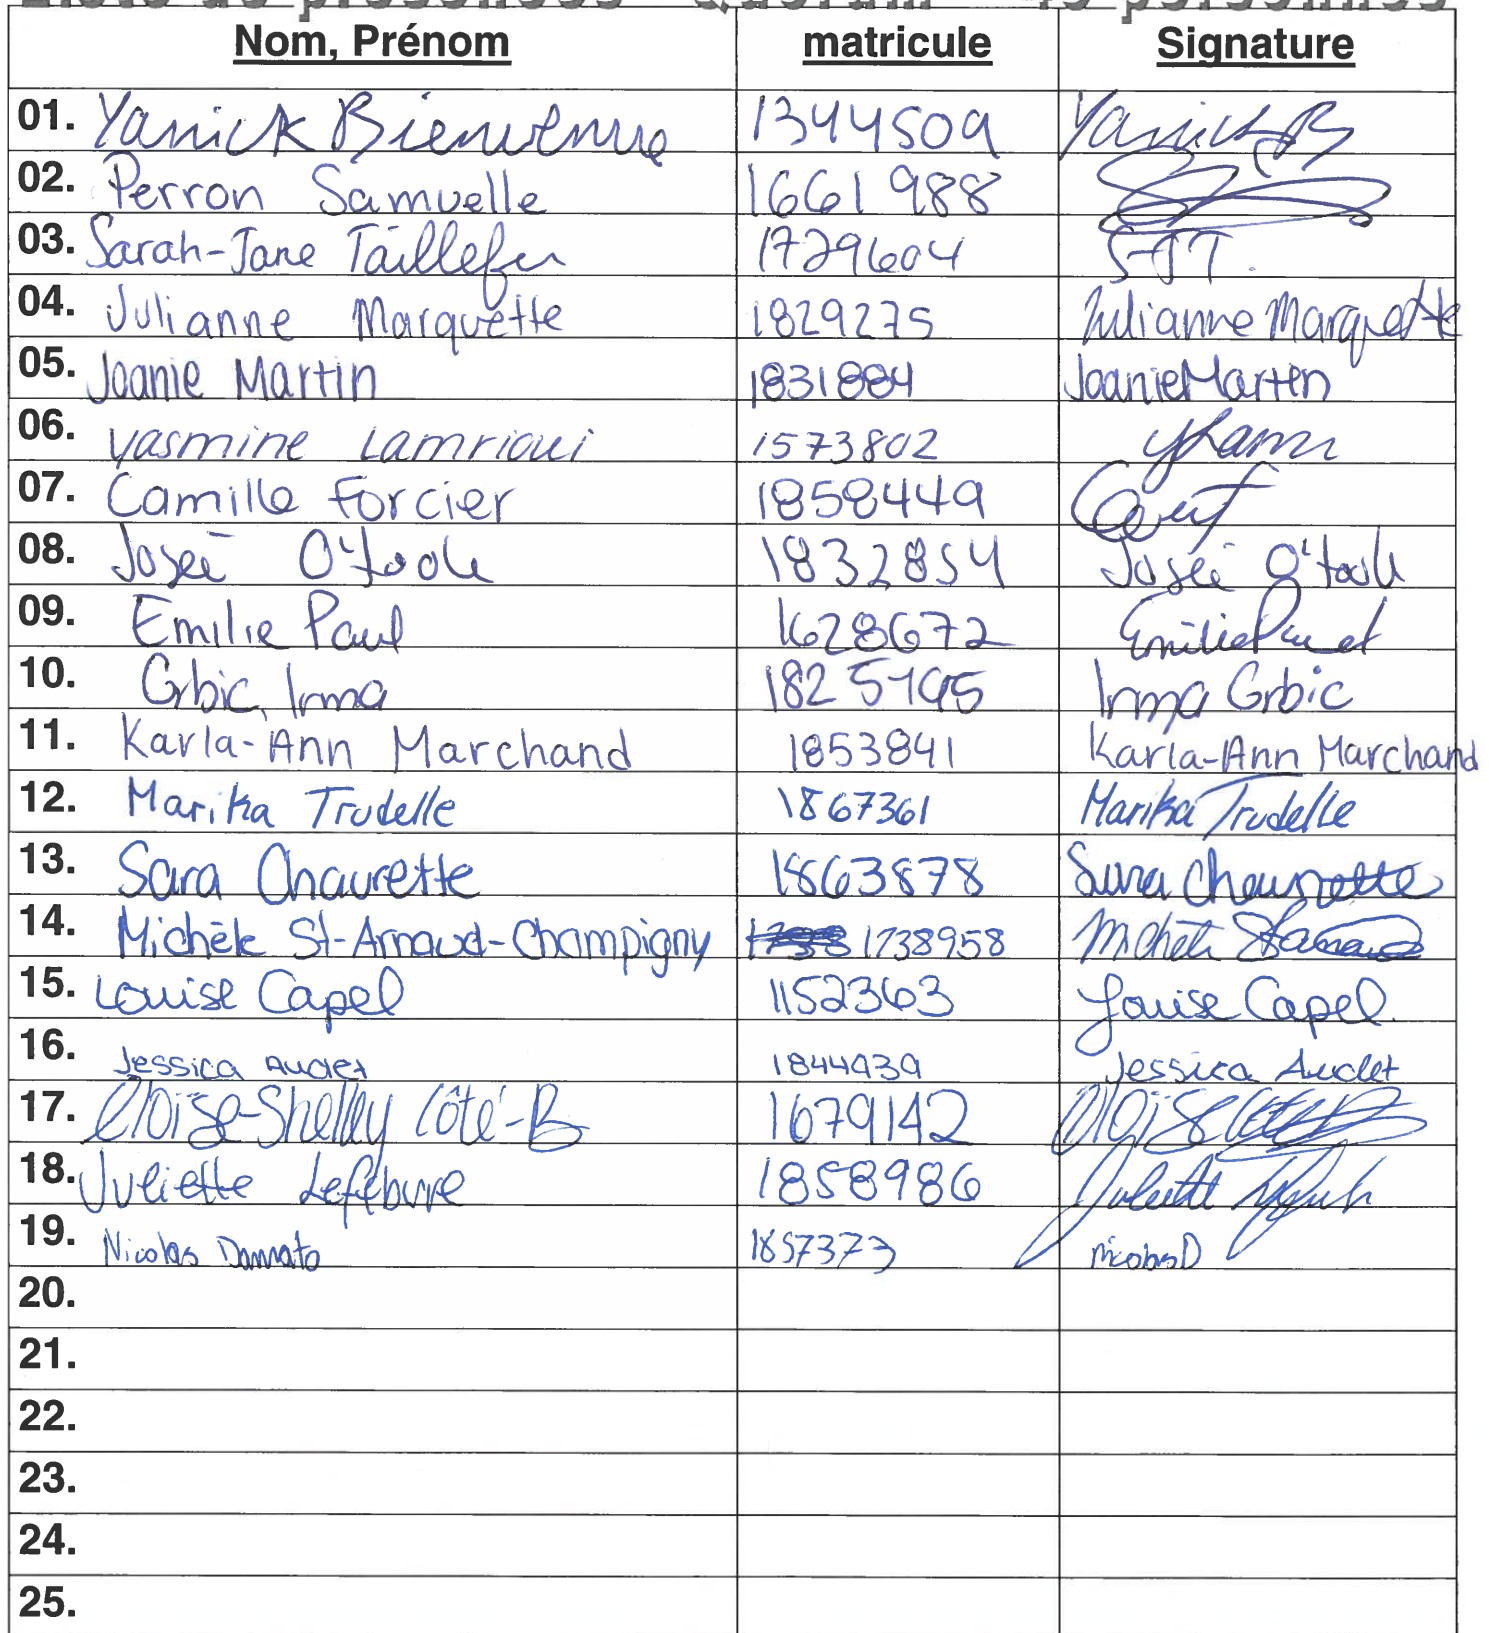 Liste de présences - Quorum - 40 personnes
Nom, Prénom matricule Signature
01. Yanick Bienvenue 1344509 Yanick B
02. Perron Samuelle 1661988
03. Sarah-Jane Taillefer 1729604 S-JT.
04. Julianne Marquette 1829275 Julianne Marquette
05. Joanie Martin 1831884 Joanie Martin
06. Yasmine Lamrioui 1573802
07. Camille Forcier 1858449
08. Josée O'toole 1832854 Josée O'toole
09. Emilie Paul 1628672
10. Grbic, Irma Irma Grbic
11. Karla-Ann Marchand 1853841 Karla-Ann Marchand
12. Marika Trudelle 1867361 Marika Trudelle
13. Sara Chaurette 1863878 Sara Chaurette
14. Michèle St-Arnaud-Champigny 1738958 Michèle
15. Louise Capel 1152363 Louise Capel
16. Jessica Audet 1844939 Jessica Audet
17. Eloïse-Shelley Côté-B 1679142
18. Juliette Lefebvre 1858986 Juliette
19. Nicolas Dannato 1857373 Nicolas D
20.
21.
22.
23.
24.
25.